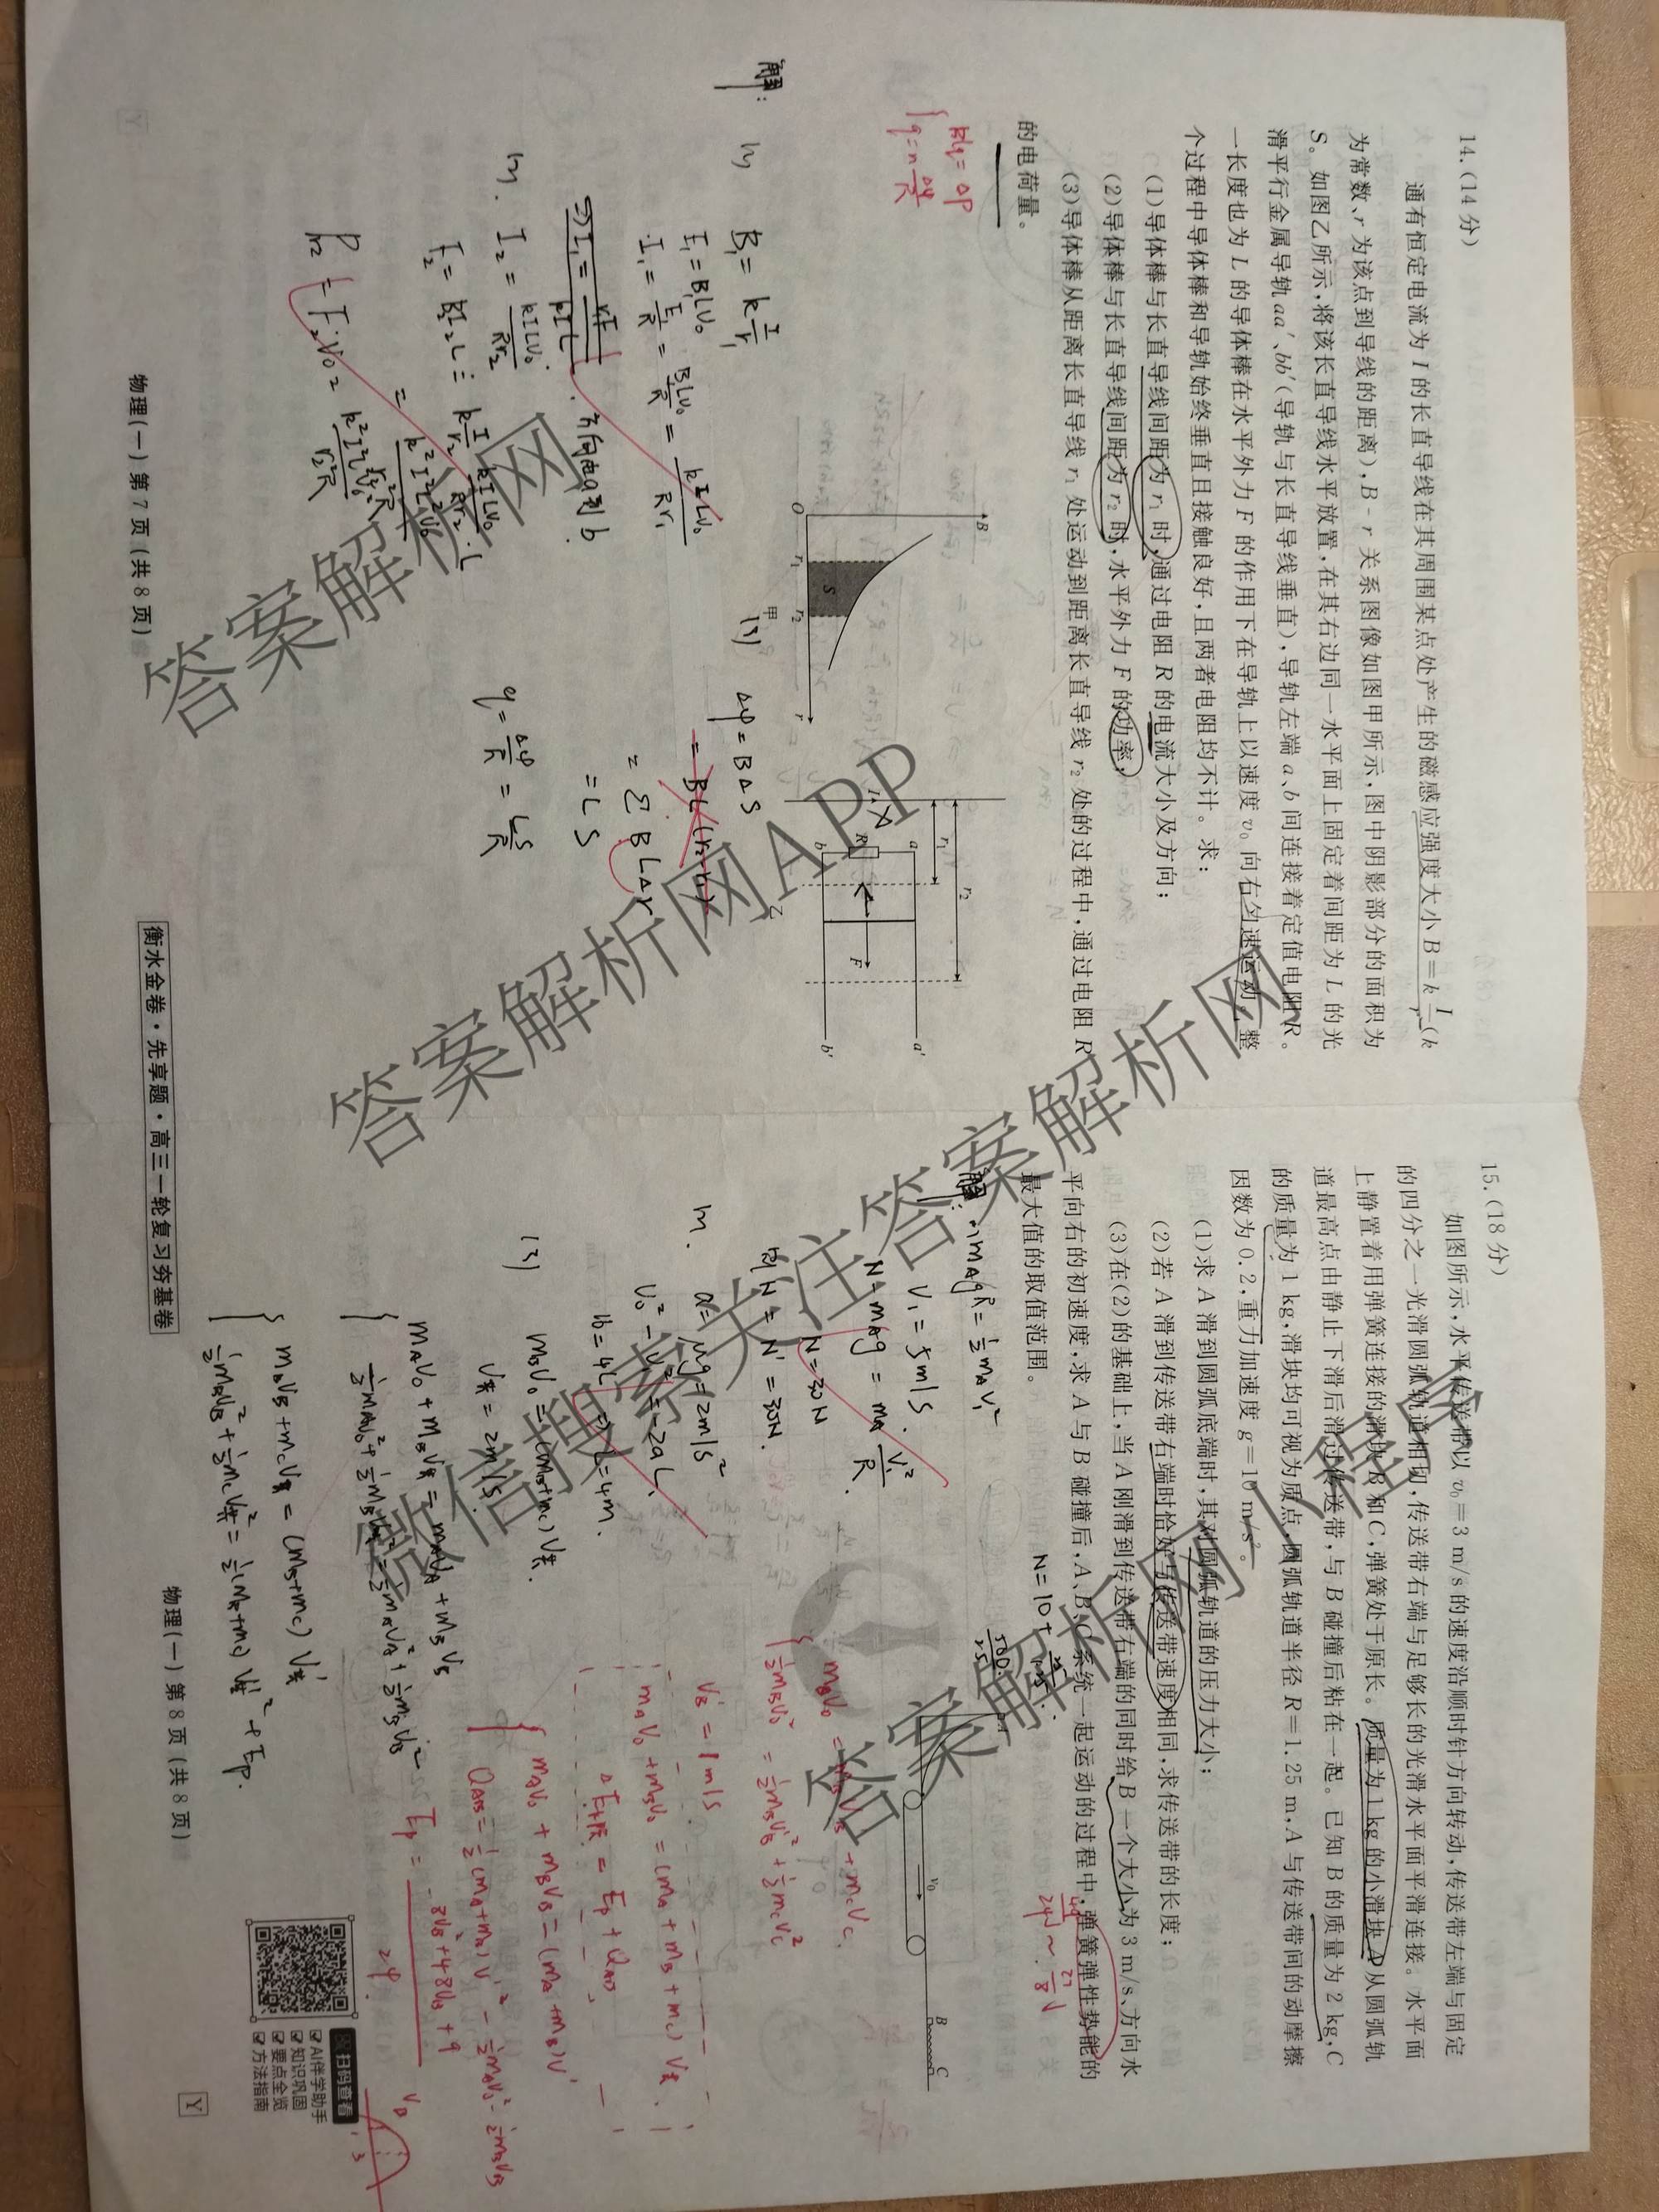 14.(14分)
通有恒定电流为I的长直导线在其周围某点处产生的磁感应强度大小B=k I/r(k
为常数、r为该点到导线的距离),B-r关系图像如图甲所示,图中阴影部分的面积为
S。如图乙所示,将该长直导线水平放置,在其右边同一水平面上固定着间距为L的光
滑平行金属导轨aa′、bb′(导轨与长直导线垂直),导轨左端a、b间连接着定值电阻R。
一长度也为L的导体棒在水平外力F的作用下在导轨上以速度v₀向右匀速运动,整
个过程中导体棒和导轨始终垂直且接触良好,且两者电阻均不计。求:
(1)导体棒与长直导线间距为r₁时,通过电阻R的电流大小及方向;
(2)导体棒与长直导线间距为r₂时,水平外力F的功率;
(3)导体棒从距离长直导线r₁处运动到距离长直导线r₂处的过程中,通过电阻R
的电荷量。
BLq=Δp
q=n Δφ/R
B
O
r₁
S
r₂
r
甲
I
r₁
r₂
a
R
b
F
a′
b′
乙
解:
(1)
B₁=k I/r₁
E₁=B₁LV₀
I₁=E/R=B₁LV₀/R=kILV₀/Rr₁
方向由a到b.
I₂=kILV₀/Rr₂
F₂=BI₂L=k I/r₂ · kILV₀/Rr₂ · L
=k²I²L²V₀/r₂²R
P₂=F₂·V₀=k²I²L²V₀²/r₂²R
(3)
Δφ=BΔS
=BL(r₂-r₁)
=ΣBLΔr
=LS
q=Δφ/R=LS/R
物理(一) 第7页(共8页)
衡水金卷·先享题·高三一轮复习夯基卷
15.(18分)
如图所示,水平传送带以v₀=3 m/s的速度沿顺时针方向转动,传送带左端与固定
的四分之一光滑圆弧轨道相切,传送带右端与足够长的光滑水平面平滑连接。水平面
上静置着用弹簧连接的滑块B和C,弹簧处于原长。质量为1 kg的小滑块A从圆弧轨
道最高点由静止下滑后滑过传送带,与B碰撞后粘在一起。已知B的质量为2 kg,C
的质量为1 kg,滑块均可视为质点,圆弧轨道半径R=1.25 m,A与传送带间的动摩擦
因数为0.2,重力加速度g=10 m/s²。
(1)求A滑到圆弧底端时,其对圆弧轨道的压力大小;
(2)若A滑到传送带右端时恰好与传送带速度相同,求传送带的长度;
(3)在(2)的基础上,当A刚滑到传送带右端的同时给B一个大小为3 m/s、方向水
平向右的初速度,求A与B碰撞后,A、B、C系统一起运动的过程中,弹簧弹性势能的
最大值的取值范围。
v₀
B
C
解:
m_A gR=½m_A V₁²
V₁=5m/s.
N-m_A g=m_A V₁²/R.
N=30N
N=N′=30N.
a=μg=2m/s²
V₀²-V₁²=-2aL.
16=4L ⇒L=4m.
(3)
m_B V₀=(m_B+m_C)V共.
V共=2m/s.
m_A V₀+m_B V共=m_A V_A+m_B V_B
½m_A V₀²+½m_B V共²=½m_A V_A²+½m_B V_B²
m_B V_B+m_C V共=(m_B+m_C)V共′
½m_B V_B²+½m_C V共²=½(m_B+m_C)V共′²+Ep.
½m_B V₀²=½m_B V_B²+½m_C V_C²
V_B′=1m/s
m_A V₀+m_B V₀=(m_A+m_B+m_C)V共.
m_A V₀+m_B V_B=(m_A+m_B)V′
物理(一) 第8页(共8页)
扫码查看
AI伴学助手
知识巩固
要点全览
方法指南
Y
微信搜索关注答案解析网
答案解析网APP
答案解析网